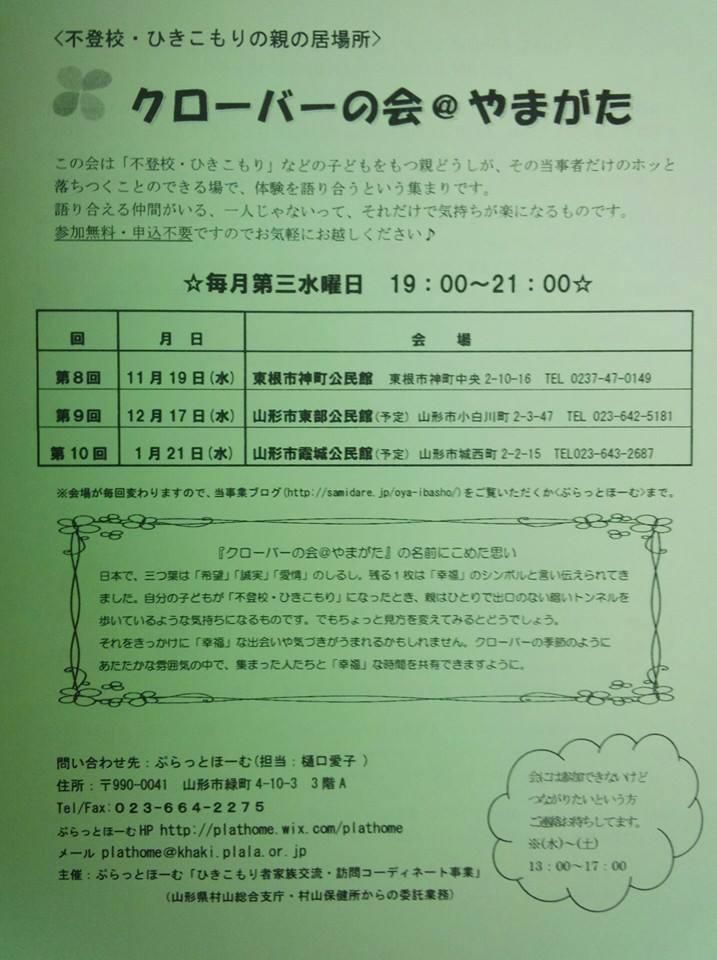 〈不登校・ひきこもりの親の居場所〉
クローバーの会@やまがた
この会は「不登校・ひきこもり」などの子どもをもつ親どうしが、その当事者だけのホッと
落ちつくことのできる場で、体験を語り合うという集まりです。
語り合える仲間がいる、一人じゃないって、それだけで気持ちが楽になるものです。
参加無料・申込不要ですのでお気軽にお越しください♪
☆毎月第三水曜日 19：00～21：00☆
回 月 日 会 場
第8回 11月19日(水) 東根市神町公民館 東根市神町中央2-10-16 TEL 0237-47-0149
第9回 12月17日(水) 山形市東部公民館(予定) 山形市小白川町2-3-47 TEL 023-642-5181
第10回 1月21日(水) 山形市霞城公民館(予定) 山形市城西町2-2-15 TEL023-643-2687
※会場が毎回変わりますので、当事業ブログ(http://samidare.jp/oya-ibasho/)をご覧いただくか<ぷらっとほーむ>まで。
『クローバーの会@やまがた』の名前にこめた思い
日本で、三つ葉は「希望」「誠実」「愛情」のしるし。残る1枚は「幸福」のシンボルと言い伝えられてき
ました。自分の子どもが「不登校・ひきこもり」になったとき、親はひとりで出口のない暗いトンネルを
歩いているような気持ちになるものです。でもちょっと見方を変えてみるとどうでしょう。
それをきっかけに「幸福」な出会いや気づきがうまれるかもしれません。クローバーの季節のように
あたたかな雰囲気の中で、集まった人たちと「幸福」な時間を共有できますように。
問い合わせ先：ぷらっとほーむ(担当：樋口愛子 )
住所：〒990-0041 山形市緑町4-10-3 3階A
Tel/Fax:023-664-2275
ぷらっとほーむHP http://plathome.wix.com/plathome
メール plathome@khaki.plala.or.jp
主催：ぷらっとほーむ「ひきこもり者家族交流・訪問コーディネート事業」
(山形県村山総合支庁・村山保健所からの委託業務)
会には参加できないけど
つながりたいという方
ご連絡お待ちしてます。
※(水)～(土)
13：00～17：00